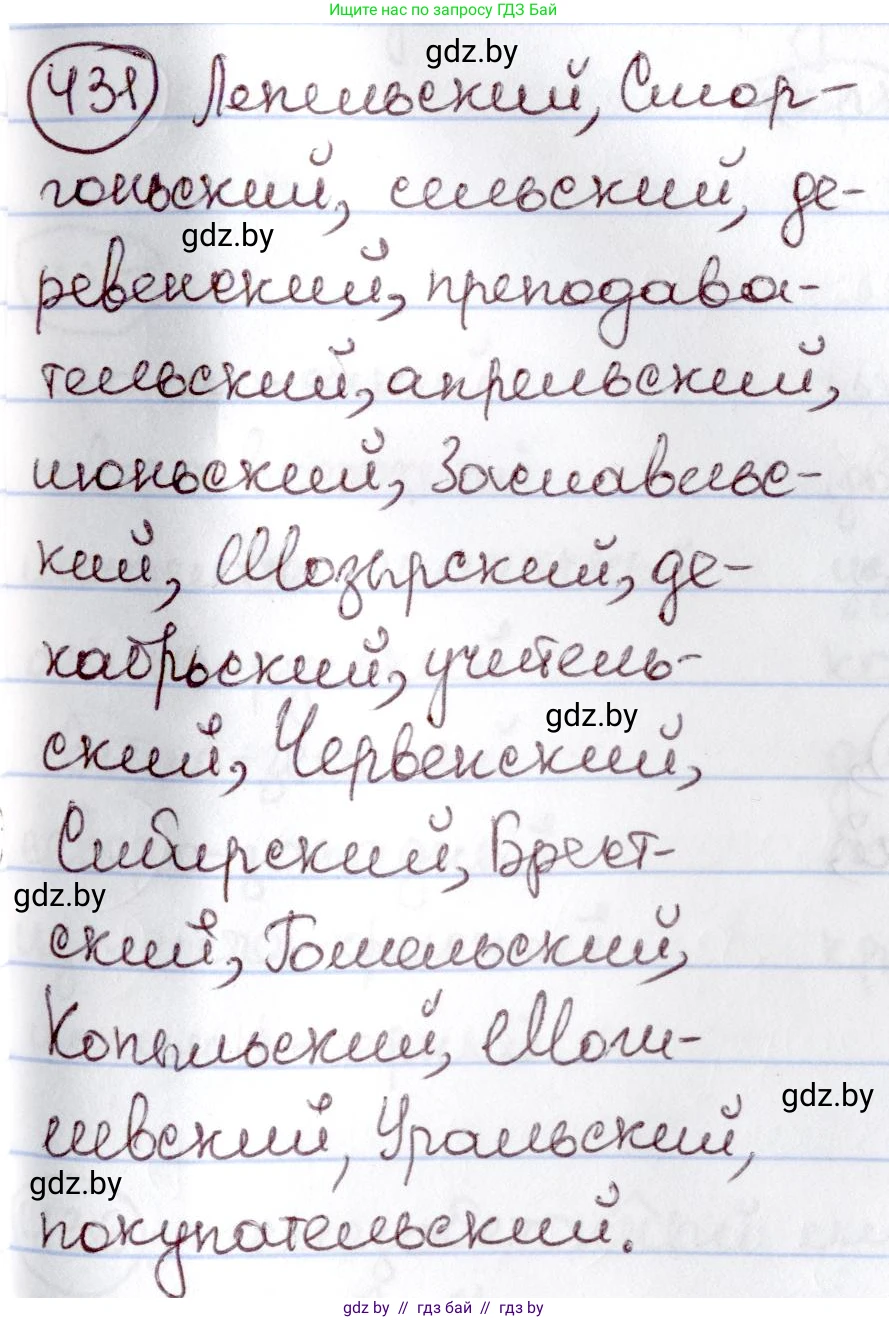 Ищите нас по запросу ГДЗ Бай
gdz.by
431 Лепельский, Смор-
гоньский, сельский, де-
gdz.by
ревенский, преподава-
тельский, апрельский,
июньский, Заславльс-
кий, Мозырский, де-
кабрьский, учитель-
gdz.by
ский, Червенский,
Сибирский, Брест-
gdz.by
ский, Гомельский,
Копыльский, Моги-
gdz.by
левский, Уральский,
gdz.by
покупательский.
gdz by // гдз бай // гдз by